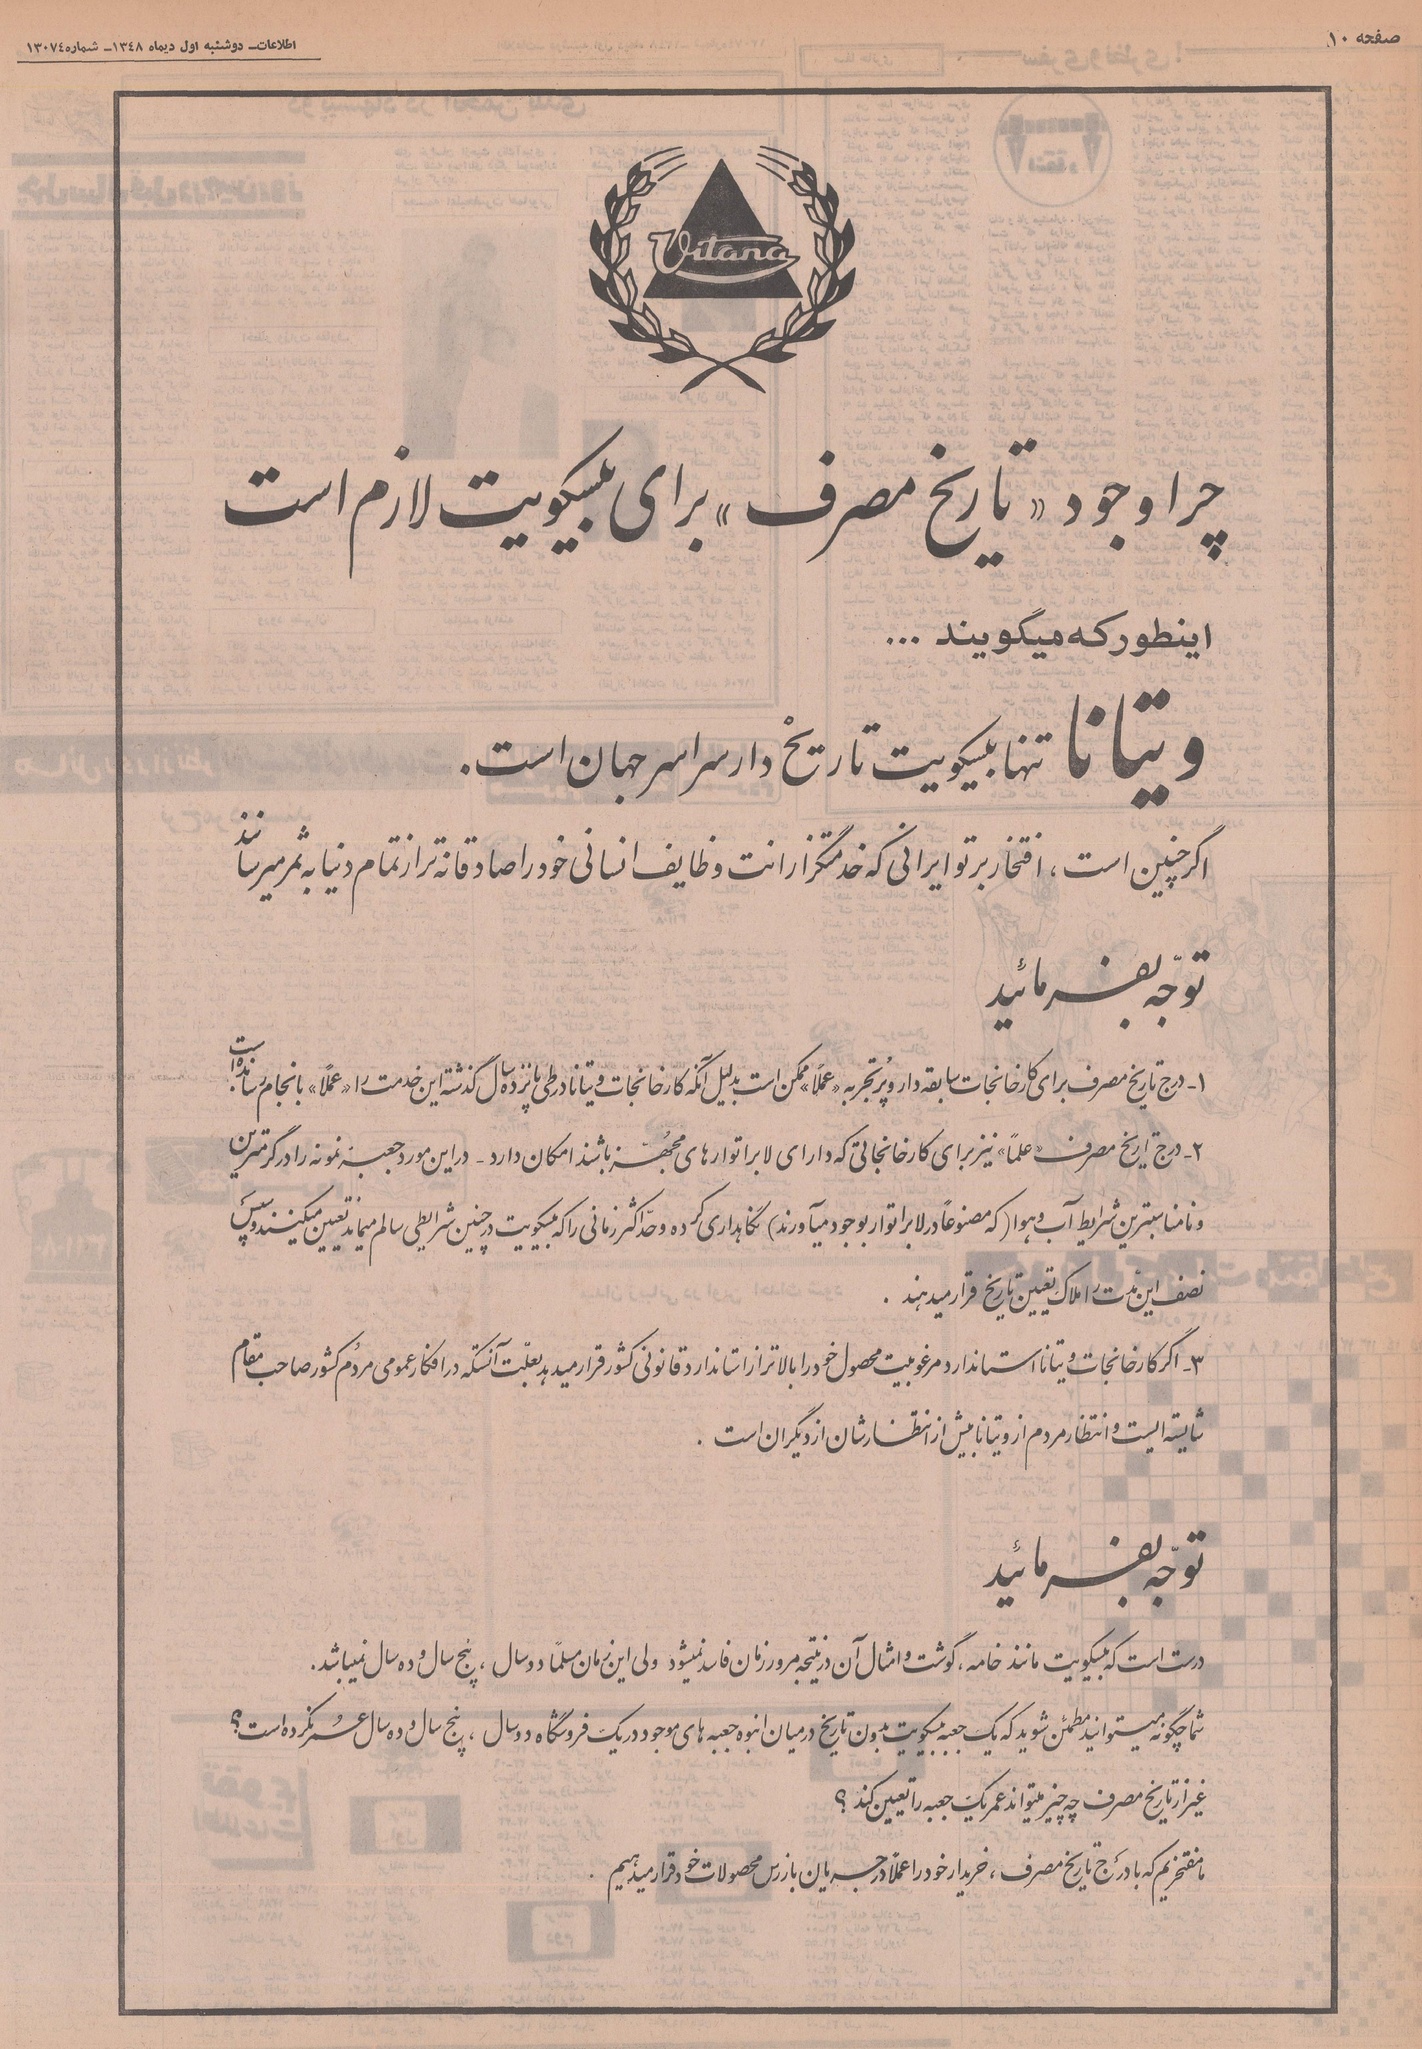 صفحه ۱۰
اطلاعات ـ دوشنبه اول دیماه ۱۳۴۸ ـ شماره ۱۳۰۷۴
Vitana
چرا وجود «تاریخ مصرف» برای بیسکویت لازم است
اینطور که میگویند ...
ویتانا تنها بیسکویت تاریخ دار سراسر جهان است.
اگر چنین است، افتخار بر تو ایرانی که خدمتگزارانت وظایف انسانی خود را صادقانه تر از تمام دنیا به ثمر میرسانند
توجّه بفرمائید
۱ـ درج تاریخ مصرف برای کارخانجات سابقه دار و پُرتجربه «عملاً» ممکن است بدلیل آنکه کارخانجات ویتانا در طی پانزده سال گذشته این خدمت را «عملاً» بانجام رسانده است.
۲ـ درج تاریخ مصرف «علماً» نیز برای کارخانجاتی که دارای لابراتوارهای مجهّز باشند امکان دارد ـ در این مورد جعبه نمونه را در گرمترین
و نامناسبترین شرایط آب و هوا (که مصنوعاً در لابراتوار بوجود میآورند) نگاهداری کرده و حدّاکثر زمانی را که بیسکویت در چنین شرایطی سالم میماند تعیین میکنند و سپس
نصف این مدّت را ملاک تعیین تاریخ قرار میدهند .
۳ـ اگر کارخانجات ویتانا استاندارد مرغوبیت محصول خود را بالاتر از استاندارد قانونی کشور قرار میدهد بعلّت آنستکه در افکار عمومی مردُم کشور صاحب مقام
شایسته ایست و انتظار مردم از ویتانا بیش از انتظارشان از دیگران است .
توجّه بفرمائید
درست است که بیسکویت مانند خامه، گوشت و امثال آن در نتیجه مرور زمان فاسد نمیشود ولی این زمان مسلماً دو سال ، پنج سال و ده سال نمیباشد.
شما چگونه میتوانید مطمئن شوید که یک جعبه بیسکویت بدون تاریخ در میان انبوه جعبه های موجود در یک فروشگاه دو سال ، پنج سال و ده سال عمر نکرده است؟
غیر از تاریخ مصرف چه چیز میتواند عمر یک جعبه را تعیین کند ؟
ما مفتخریم که با درج تاریخ مصرف ، خریدار خود را عملاً در جریان بازرسی محصولات خود قرار میدهیم .